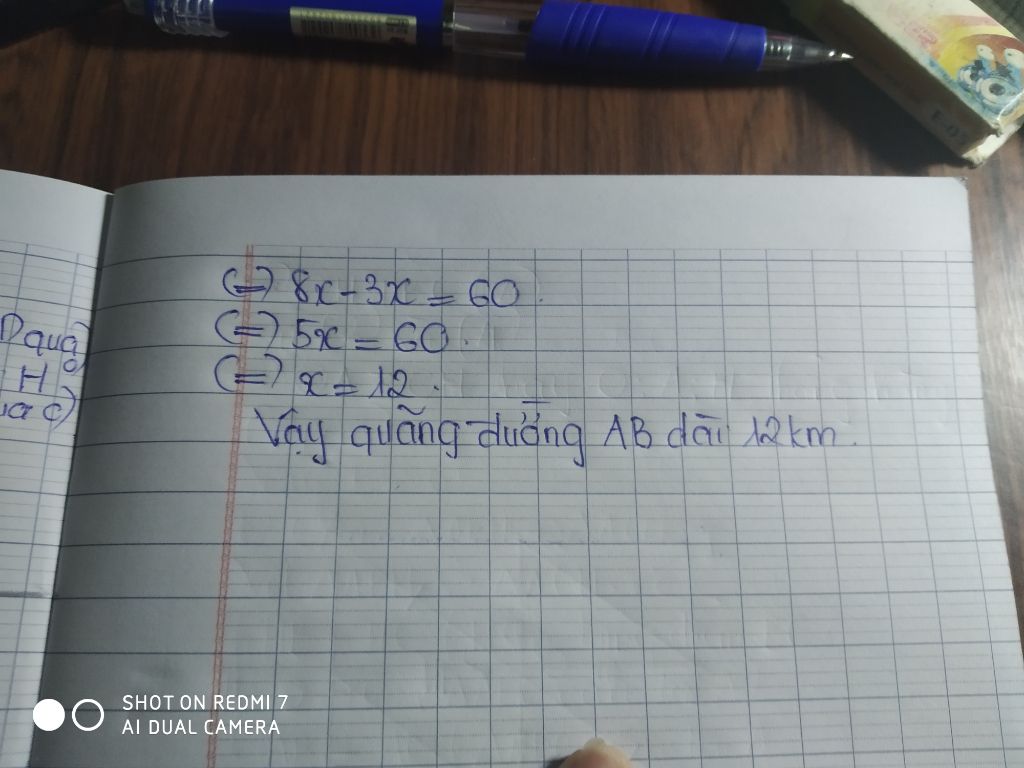 D quá
H
(=) 8x - 3x = 60.
(=) 5x = 60.
(=) x = 12.
Vậy quãng đường AB dài 12 km.
SHOT ON REDMI 7
AI DUAL CAMERA